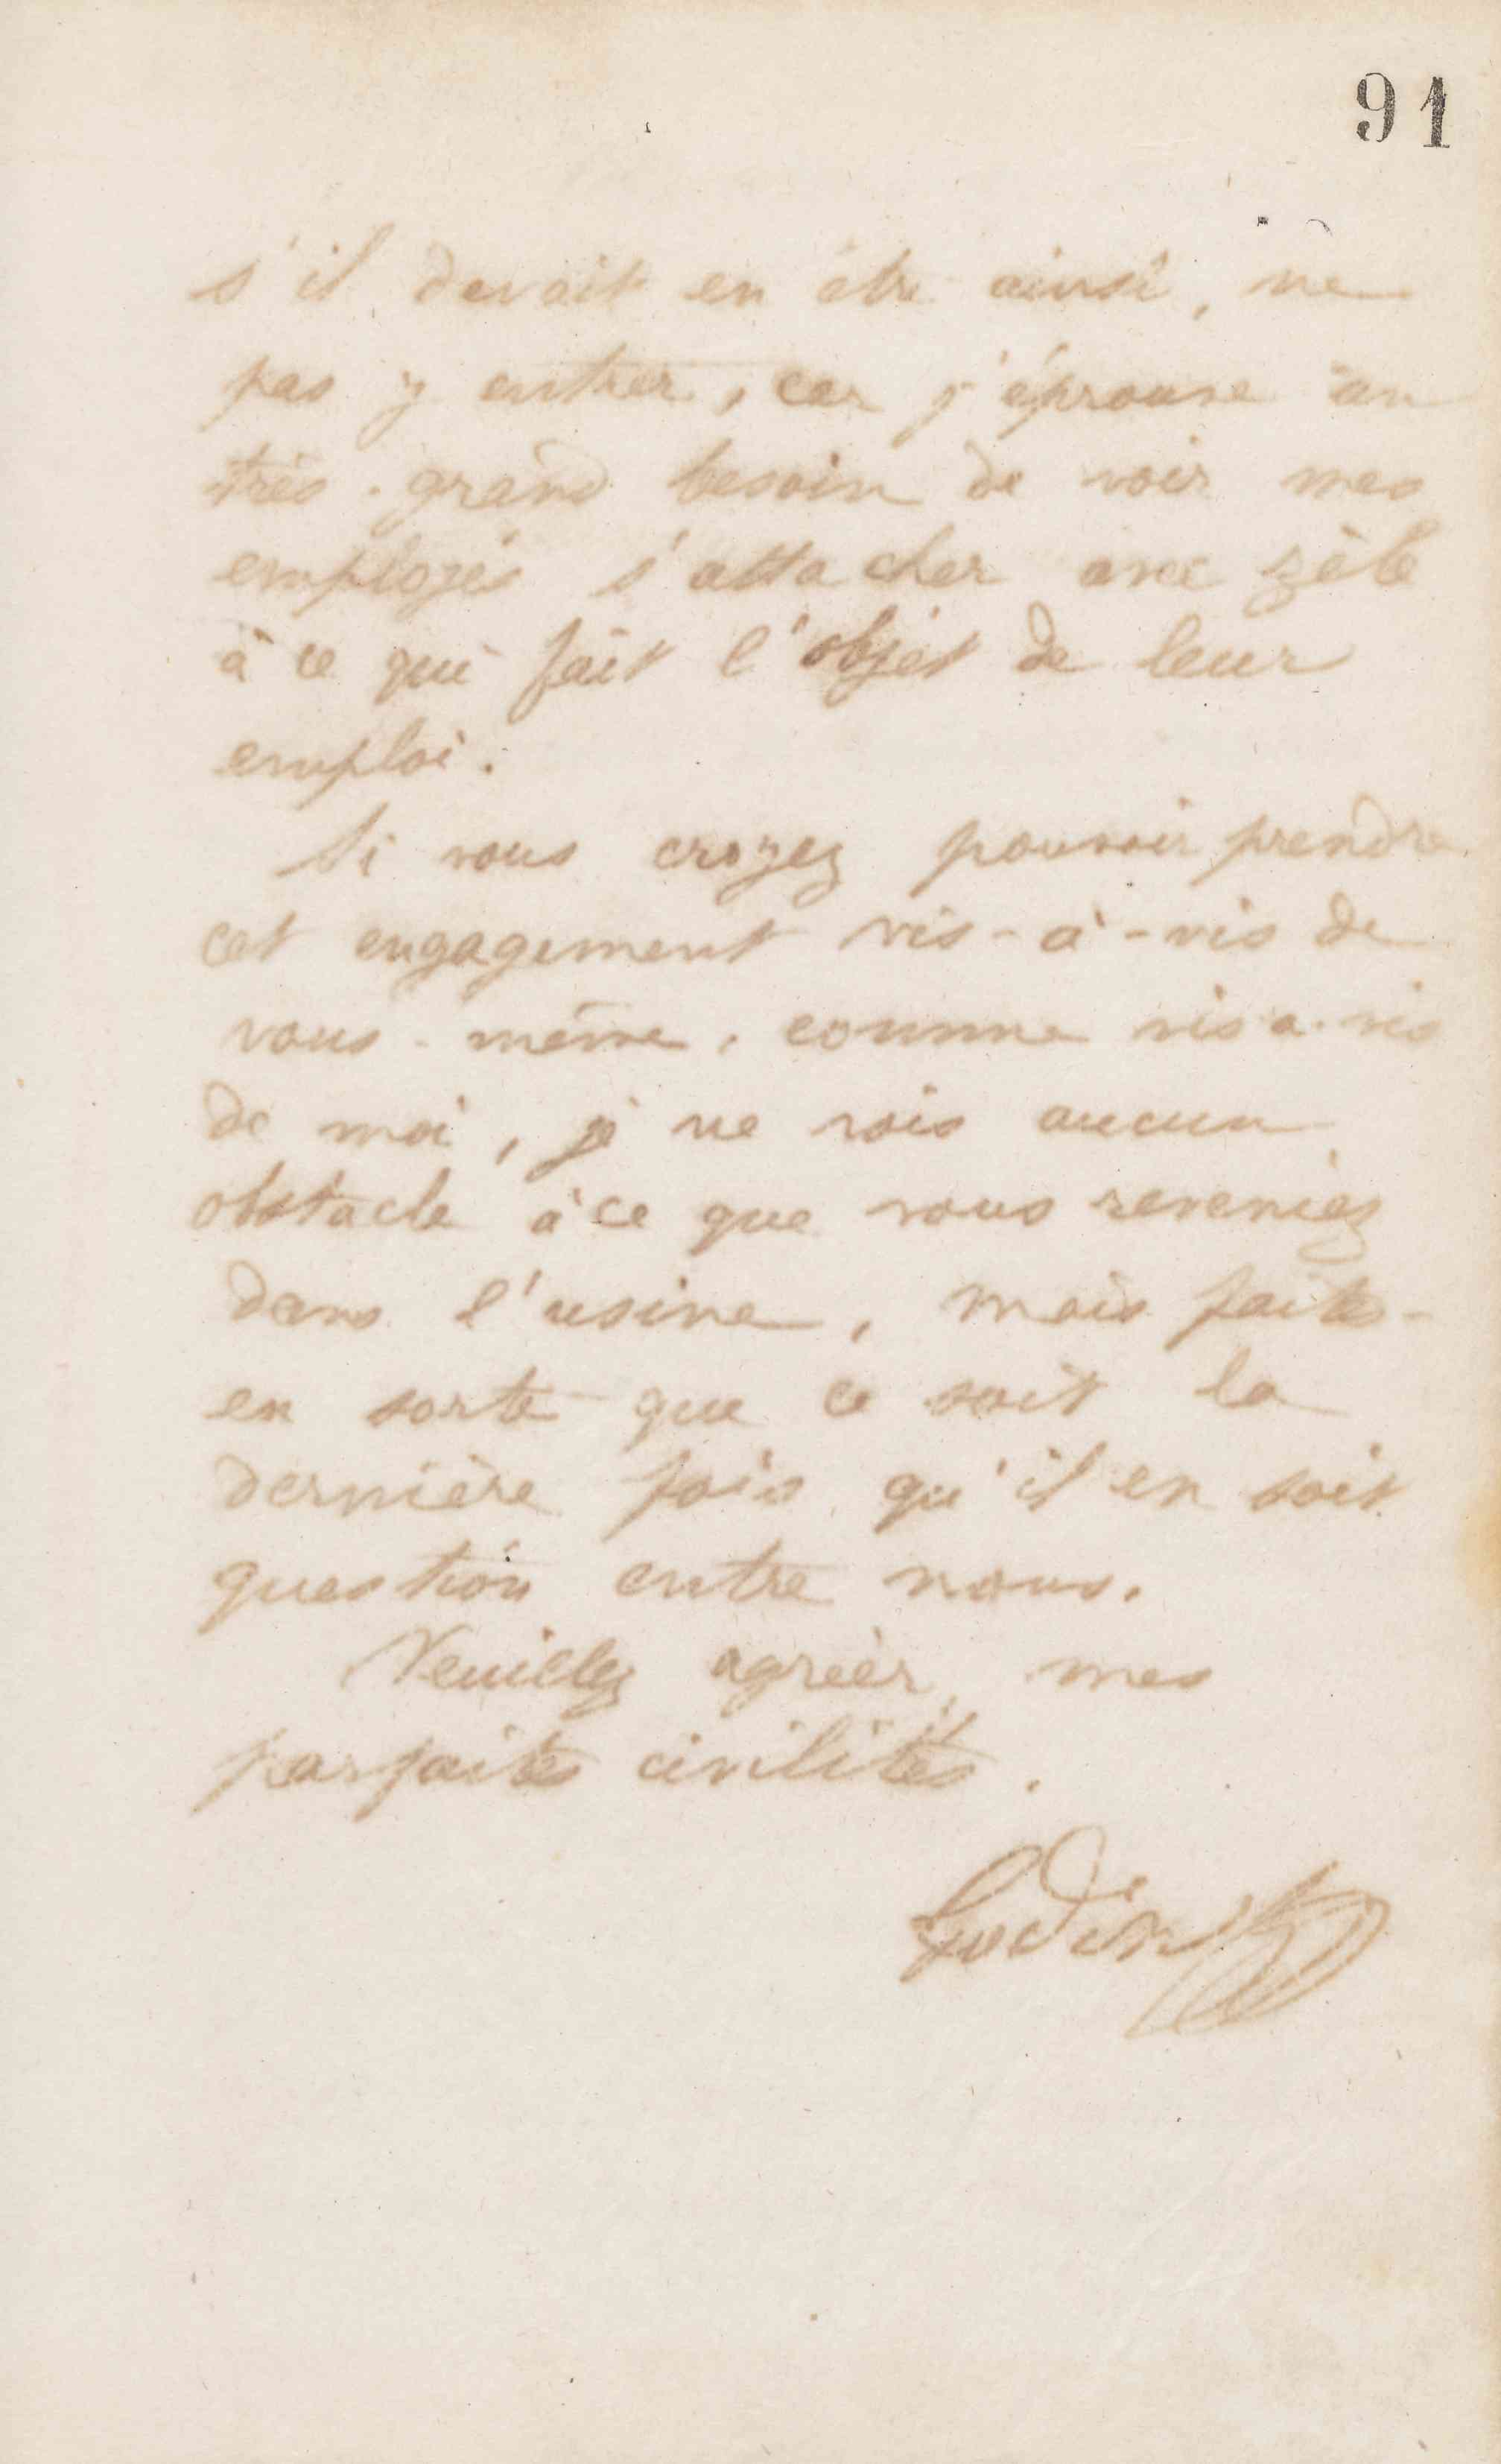 91
s'il devait en être ainsi, ne
pas y entrer, car j'éprouve un
très-grand besoin de voir mes
employés s'attacher avec zèle
à ce qui fait l'objet de leur
emploi.
Si vous croyez pouvoir prendre
cet engagement vis-à-vis de
vous-même, comme vis-a-vis
de moi, je ne vois aucun
obstacle à ce que vous reveniez
dans l'usine, mais faites-
en sorte que ce soit la
dernière fois qu'il en soit
question entre nous.
Veuillez agréer, mes
parfaites civilités.
Godin